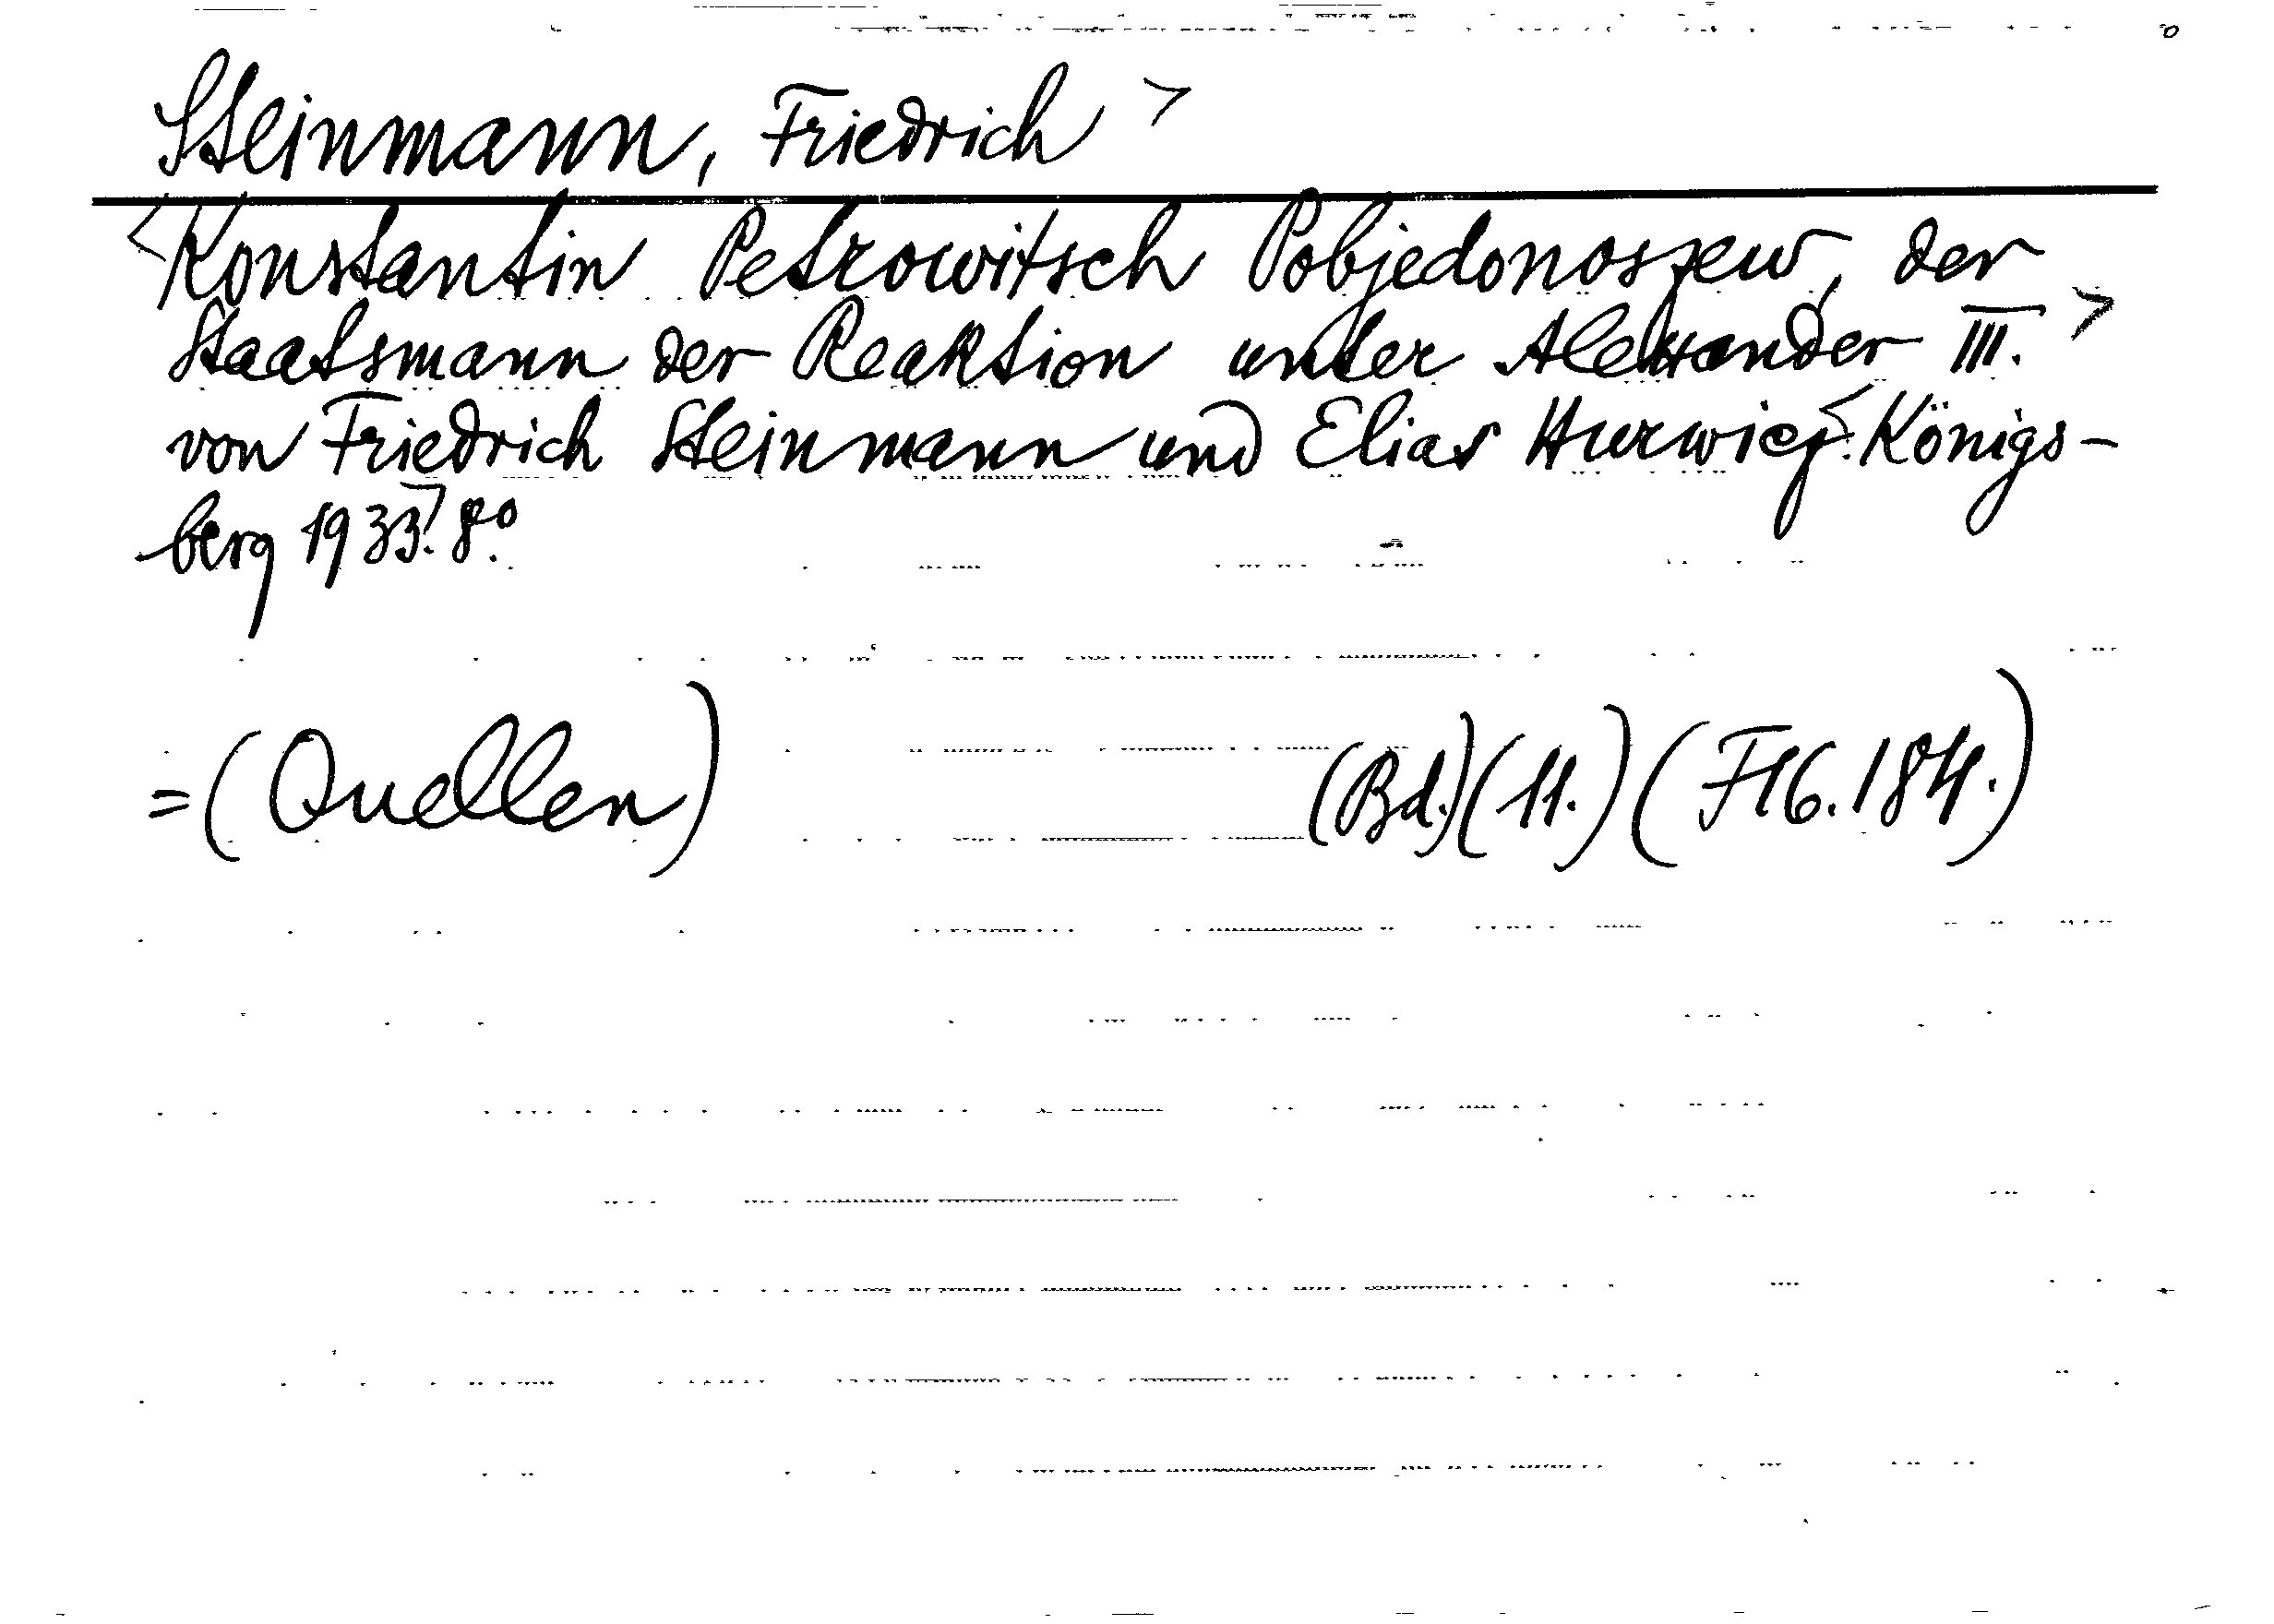 Steinmann, Friedrich >
<Konstantin Petrowitsch Pobjedonoszew, der
Staatsmann der Reaktion unter Alexander III. >
von Friedrich Steinmann und Elias Hurwicz. <Königs-
berg 1933>. 8°.
=(Quellen) (Bd.)(11.)(F16.184.)